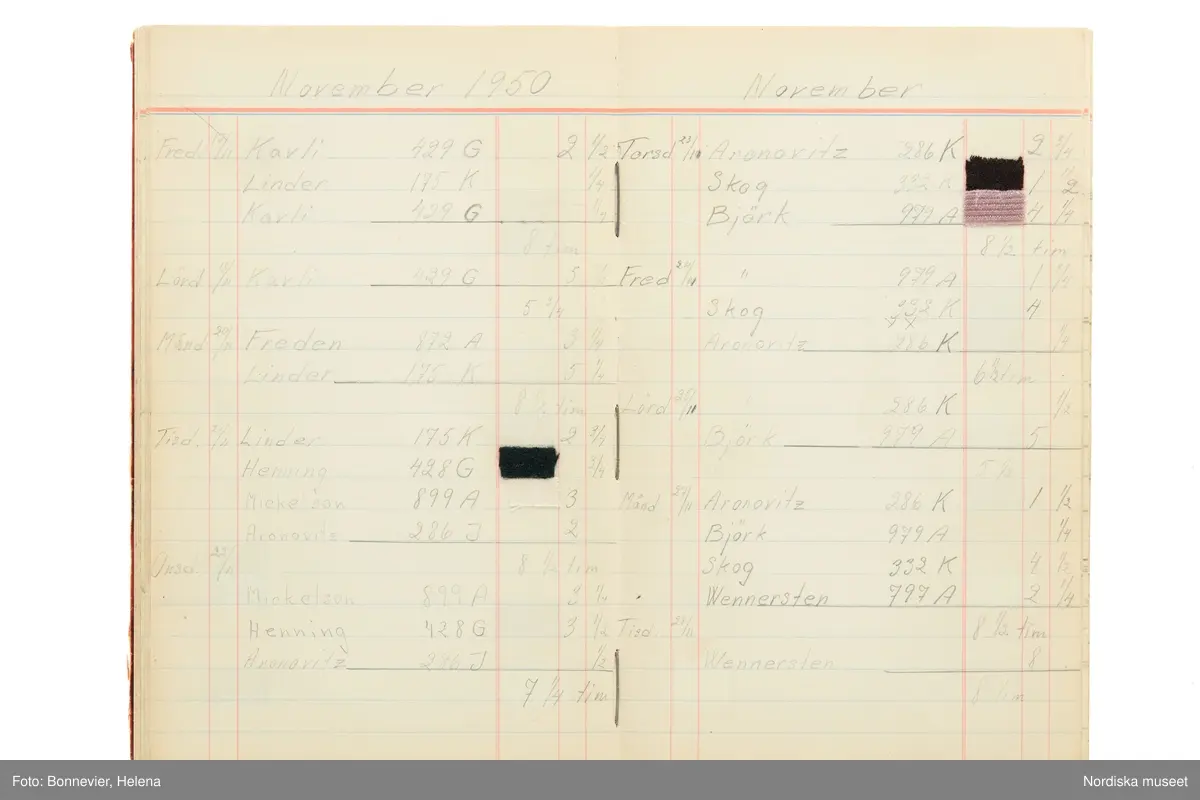 November 1950
Fred 17/11 Karli 429 G 2 1/2
Linder 175 K 1/4
Karli 429 G 1/2
8 tim
Lörd 18/11 Karli 429 G 5
5 3/4
Månd 20/11 Freden 872 A 3 1/4
Linder 175 K 5 1/4
8 1/2 tim
Tisd. 21/11 Linder 175 K 2
Henning 428 G 3/4
Mickelson 899 A 3
Aronovitz 286 J 2
Onsd 22/11 8 1/2 tim
Mickelson 899 A 3 1/4
Henning 428 G 3 1/2
Aronovitz 286 J 1/2
7 1/4 tim
November
Torsd 23/11 Aronovitz 286 K 2 3/4
Skog 332 K 1 1/2
Björk 979 A 4 1/4
8 1/2 tim
Fred 24/11 " 979 A 1
Skog 332 K 4
Aronovitz 286 K 1/4
tim
Lörd 25/11 286 K 1/2
Björk 979 A 5
5 1/2
Månd 27/11 Aronovitz 286 K 1 1/2
Björk 979 A 1/4
Skog 332 K 4 1/2
Wennersten 797 A 2 1/4
8 1/2 tim
Tisd. 28/11
Wennersten 8
8 tim
Foto: Bonnevier, Helena
Nordiska museet